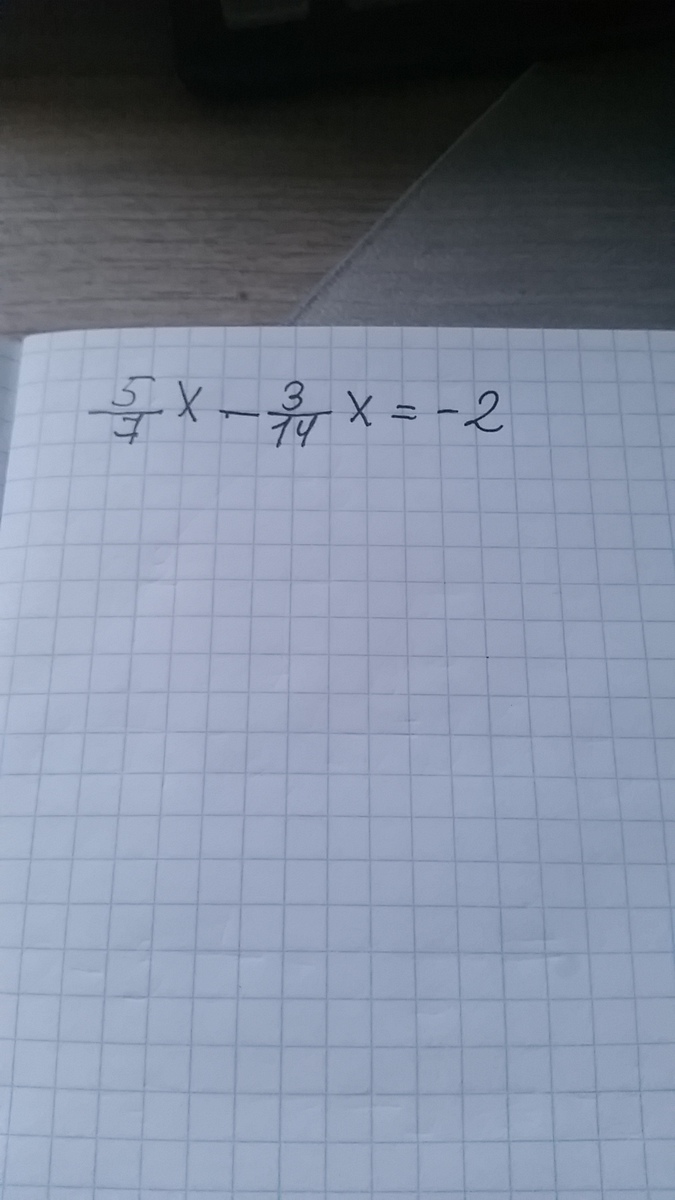 5/7 x - 3/14 x = -2